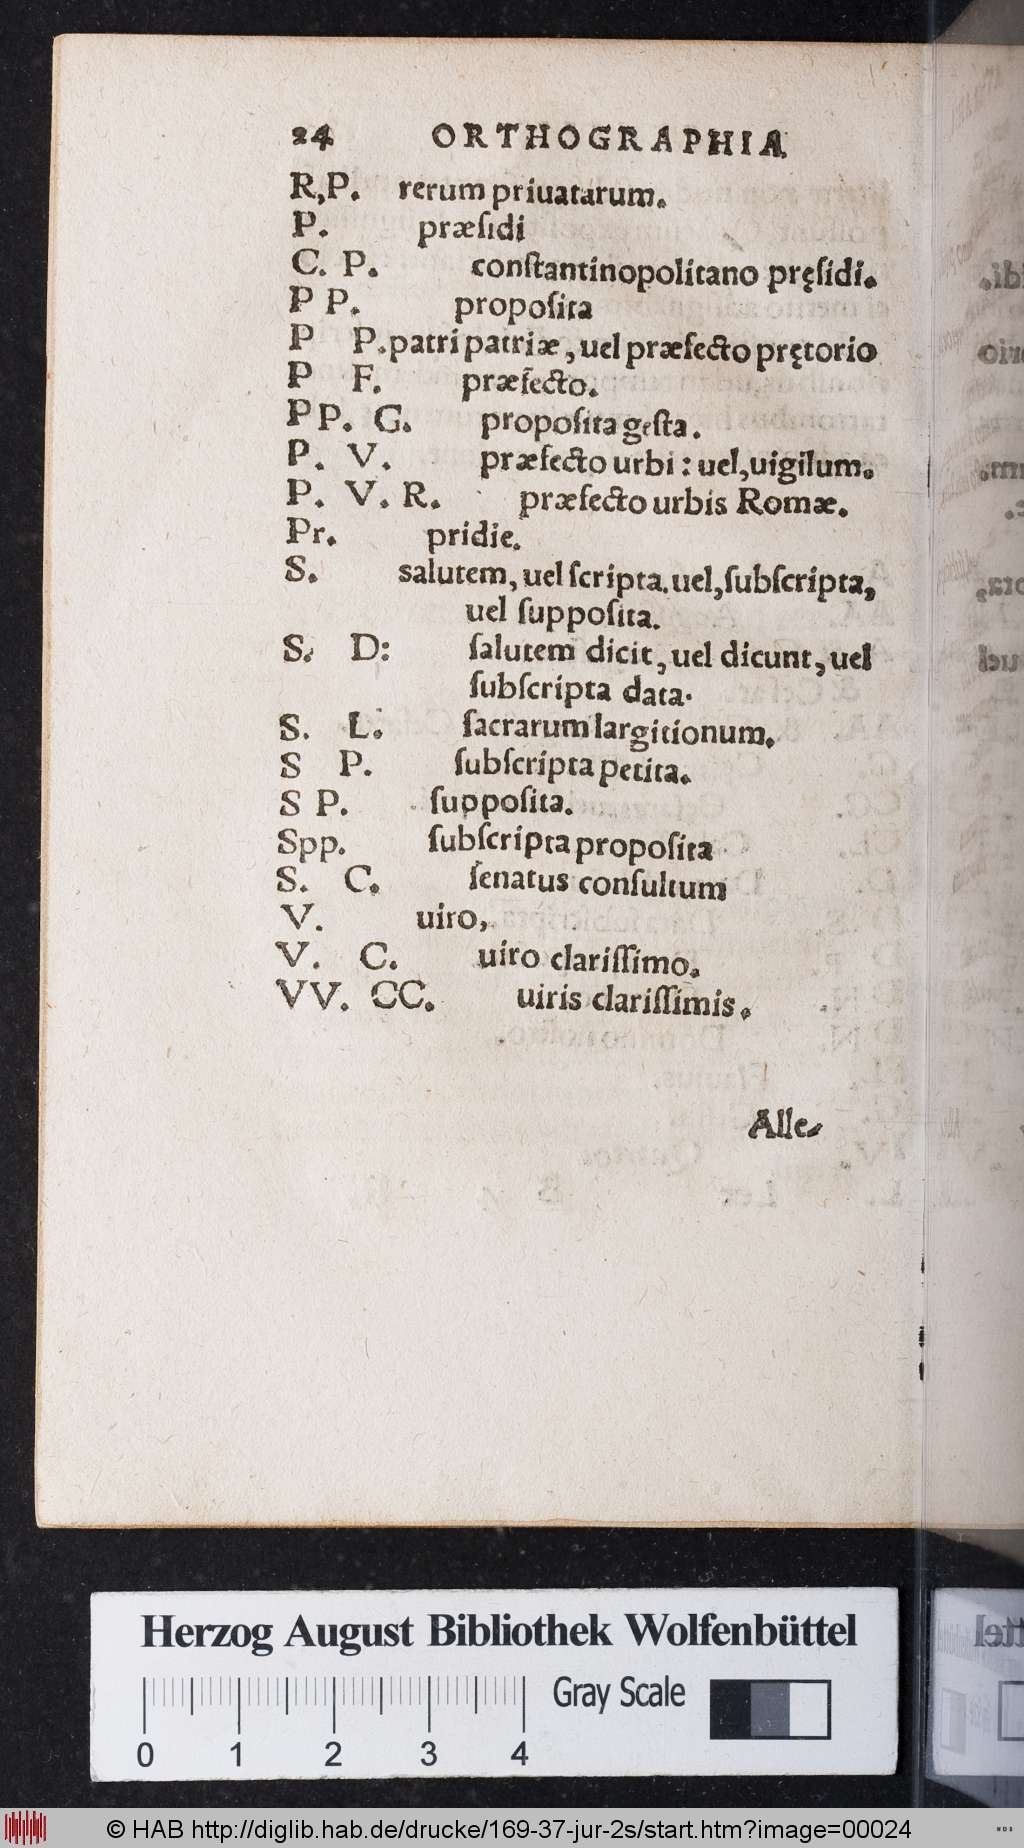 24 ORTHOGRAPHIA
R,P. rerum priuatarum.
P. præſidi
C. P. conſtantinopolitano pręſidi.
P P. propoſita
P P. patri patriæ, uel præfecto prętorio
P F. præfecto.
PP. G. propoſita geſta.
P. V. præfecto urbi: uel, uigilum.
P. V. R. præfecto urbis Romæ.
Pr. pridie.
S. salutem, uel ſcripta. uel, ſubſcripta,
uel ſuppoſita.
S. D: ſalutem dicit, uel dicunt, uel
ſubſcripta data.
S. L. ſacrarum largitionum.
S P. ſubſcripta petita.
S P. ſuppoſita.
Spp. ſubſcripta propoſita
S. C. ſenatus conſultum
V. uiro,
V. C. uiro clariſſimo.
VV. CC. uiris clariſſimis.
Alle-
Herzog August Bibliothek Wolfenbüttel
Gray Scale
0 1 2 3 4
© HAB http://diglib.hab.de/drucke/169-37-jur-2s/start.htm?image=00024